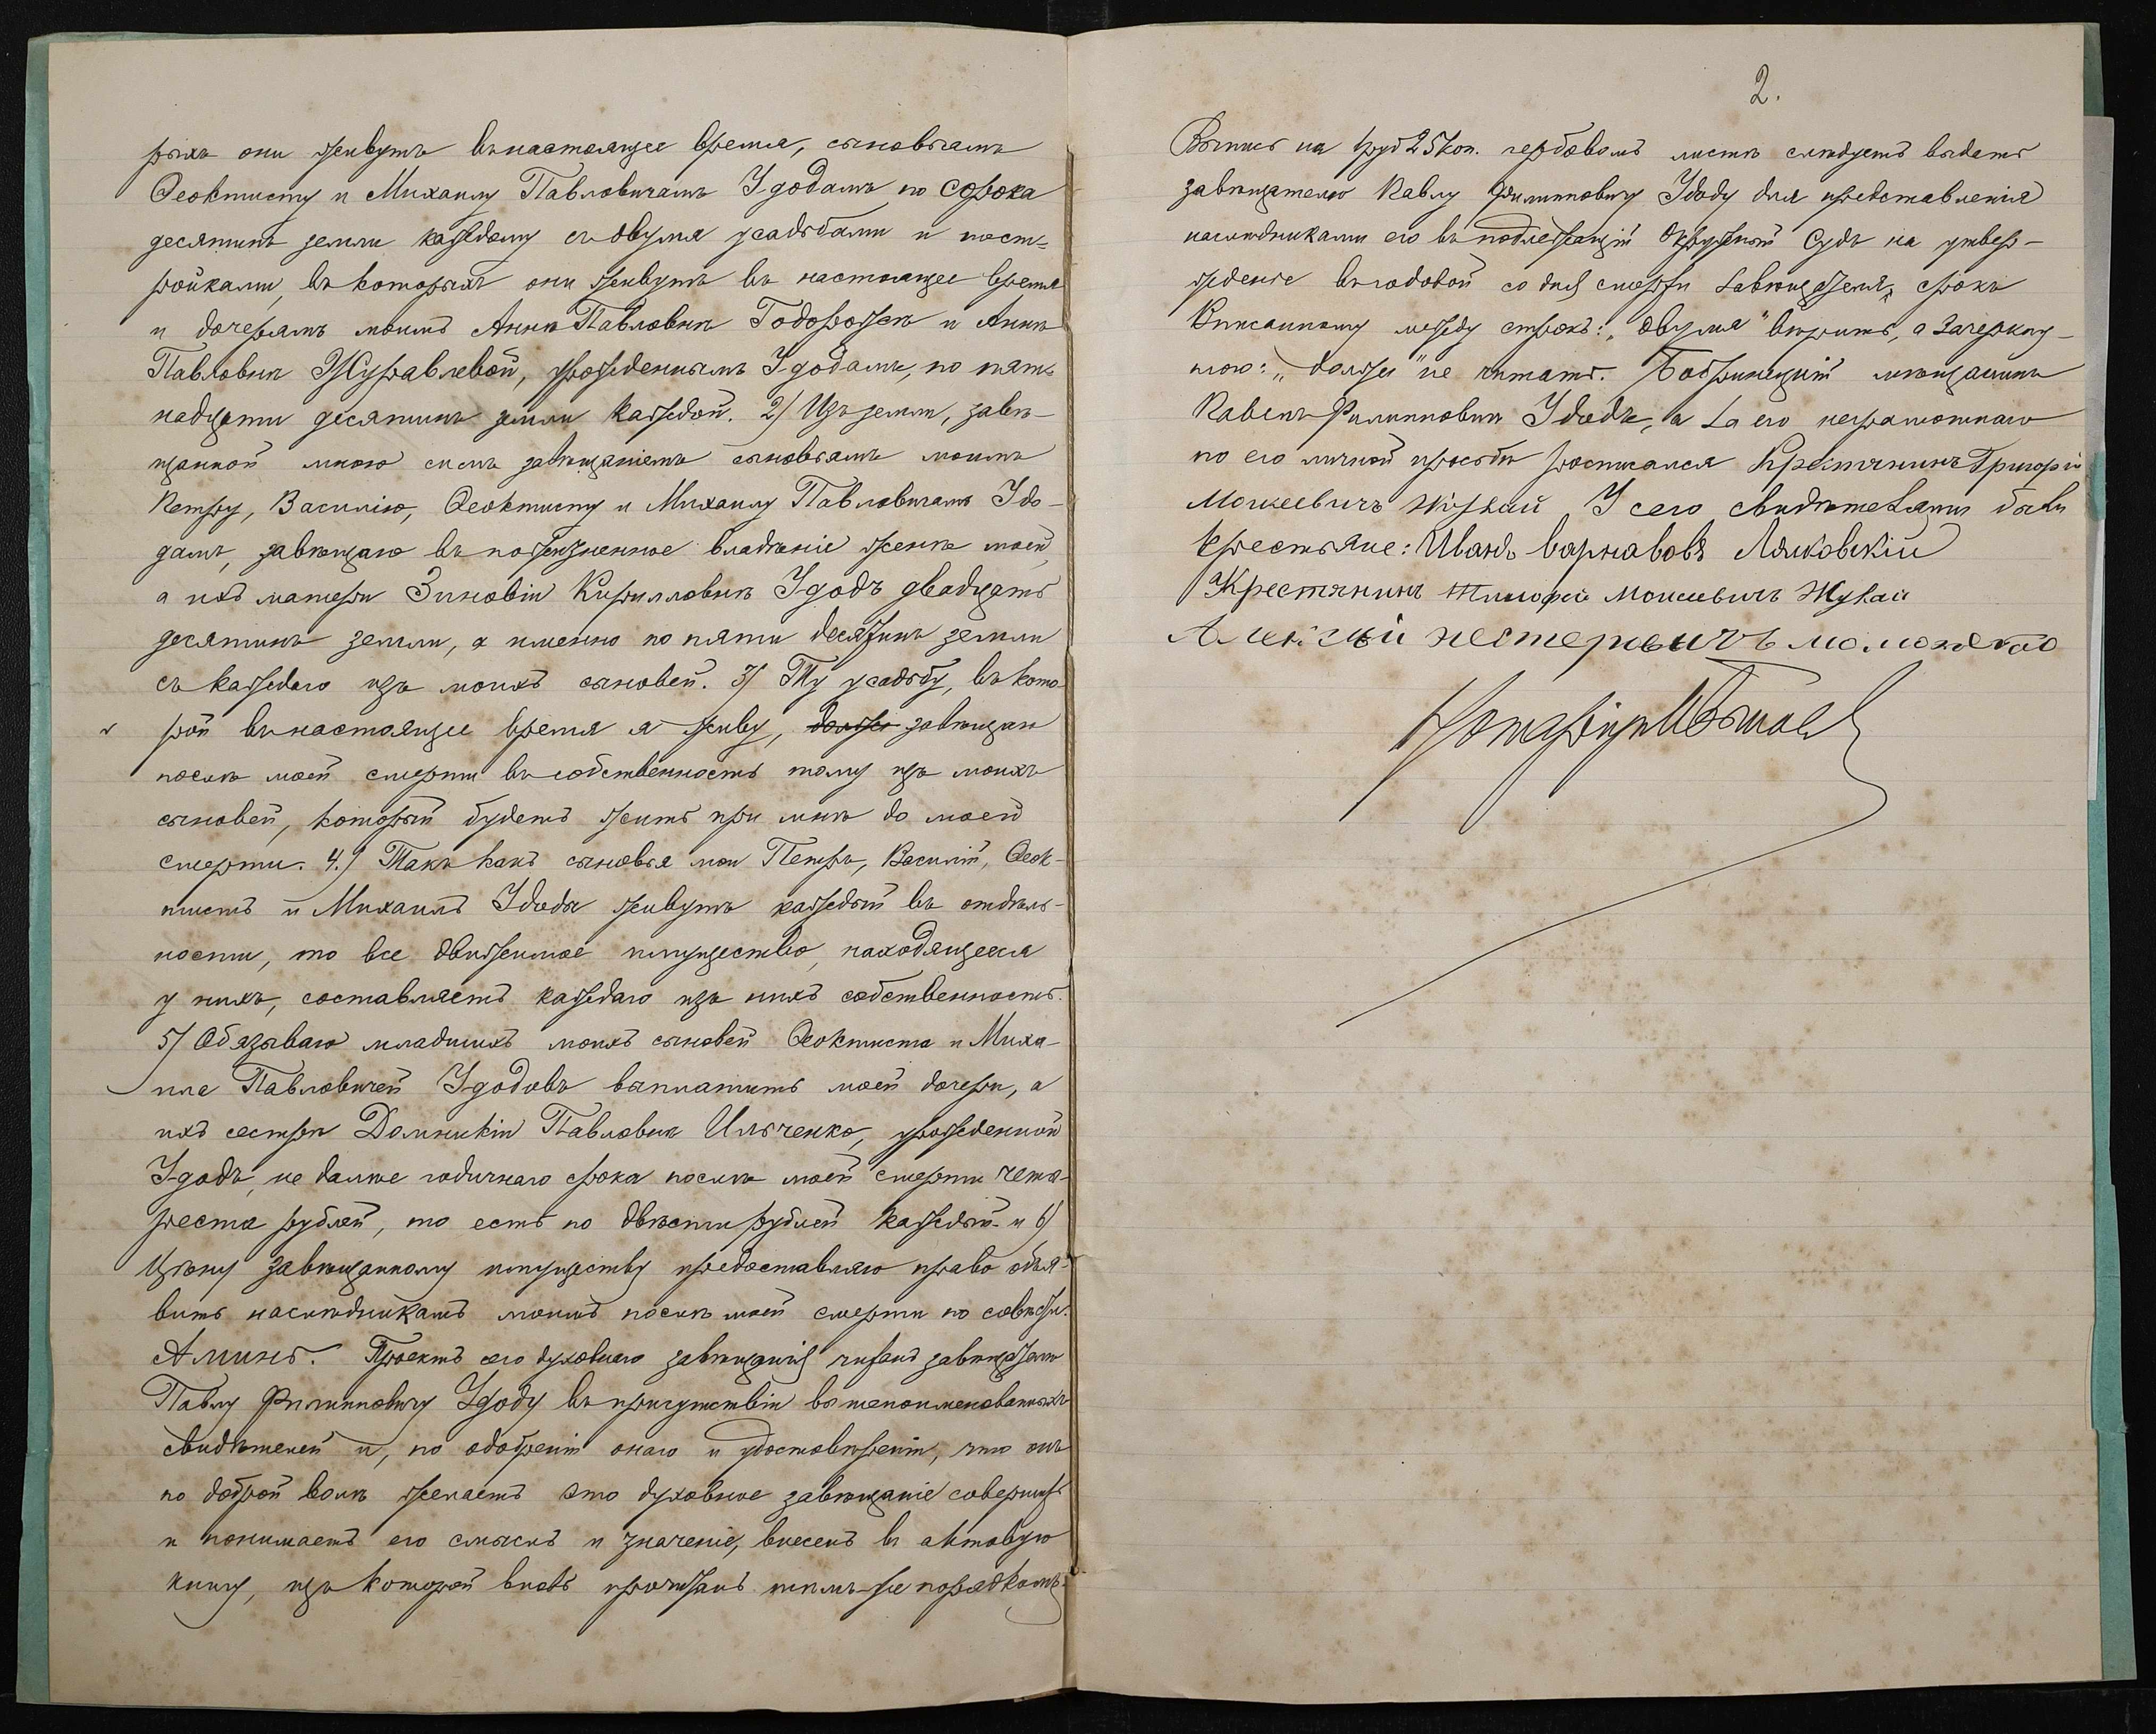 рыхъ они живутъ въ настоящее время, сыновьямъ
Ѳеоктисту и Михаилу Павловичамъ Удодамъ по сорока
десятинъ земли каждому съ двумя усадьбами и пост-
ройками, въ которыхъ они живутъ въ настоящее время
и дочерямъ моимъ Аннѣ Павловнѣ Годорожей и Аннѣ
Павловнѣ Журавлевой, урожденнымъ Удодамъ, по пят-
надцати десятинъ земли каждой. 2) Изъ земли, завѣ-
щанной мною симъ завѣщаніемъ сыновьямъ моимъ
Петру, Василію, Ѳеоктисту и Михаилу Павловичамъ Удо-
дамъ, завѣщаю въ пожизненное владѣніе женѣ моей,
а ихъ матери Зиновіи Кирилловнѣ Удодъ двадцать
десятинъ земли, а именно по пяти десятинъ земли
съ каждаго изъ моихъ сыновей. 3) Ту усадьбу, въ кото-
рой въ настоящее время я живу, должен завѣщаю
послѣ моей смерти въ собственность тому изъ моихъ
сыновей, который будетъ жить при мнѣ до моей
смерти. 4.) Такъ какъ сыновья мои Петръ, Василій, Ѳеок-
тистъ и Михаилъ Удоды живутъ каждый въ отдѣль-
ности, то все движимое имущество, находящееся
у нихъ, составляетъ каждаго изъ нихъ собственность.
5) Обязываю младшихъ моихъ сыновей Ѳеоктиста и Миха-
ила Павловичей Удодовъ выплатить моей дочери, а
ихъ сестрѣ Домникіи Павловнѣ Ильченко, урожденной
Удодъ, не далѣе годичнаго срока послѣ моей смерти четы-
реста рублей, то есть по двѣсти рублей каждый и 6)
Цѣну завѣщанному имуществу предоставляю право объя-
вить наслѣдникамъ моимъ послѣ моей смерти по совѣсти.
Аминь. Проектъ сего духовнаго завѣщанія читанъ завѣщателю
Павлу Филипповичу Удоду въ присутствіи вышепоименованныхъ
свидѣтелей и, по одобреніи онаго и удостовѣреніи, что онъ
по доброй волѣ желаетъ это духовное завѣщаніе совершить
и понимаетъ его смыслъ и значеніе, внесенъ въ актовую
книгу, изъ которой вновь прочитанъ тѣмъ-же порядкомъ.
2.
Выпись на 25 коп. гербовомъ листѣ слѣдуетъ выдать
завѣщателю Павлу Филипповичу Удоду для представленія
наслѣдниками его въ подлежащій Окружный Судъ на утвер-
жденіе въ годовой со дня смерти завѣщателя срокъ
Вписанному между строкъ: „двумя" вѣрить, а зачеркну-
тою: не читать. Бобринецкій мѣщанинъ
Павелъ Филипповичъ Удодъ, а за его неграмотнаго
по его личной просьбѣ росписался Крестянинъ Григорій
Моисеевичъ У сего свидѣтелями были
крестьяне: Иванъ Варнавовъ Лямковскій
Крестянинъ Моисеевичъ Жукай
Алексѣй нестеровичъ
Нотаріусъ